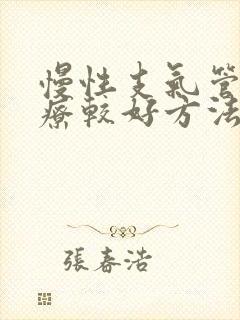 慢性支氣管
療較好方法
張春浩